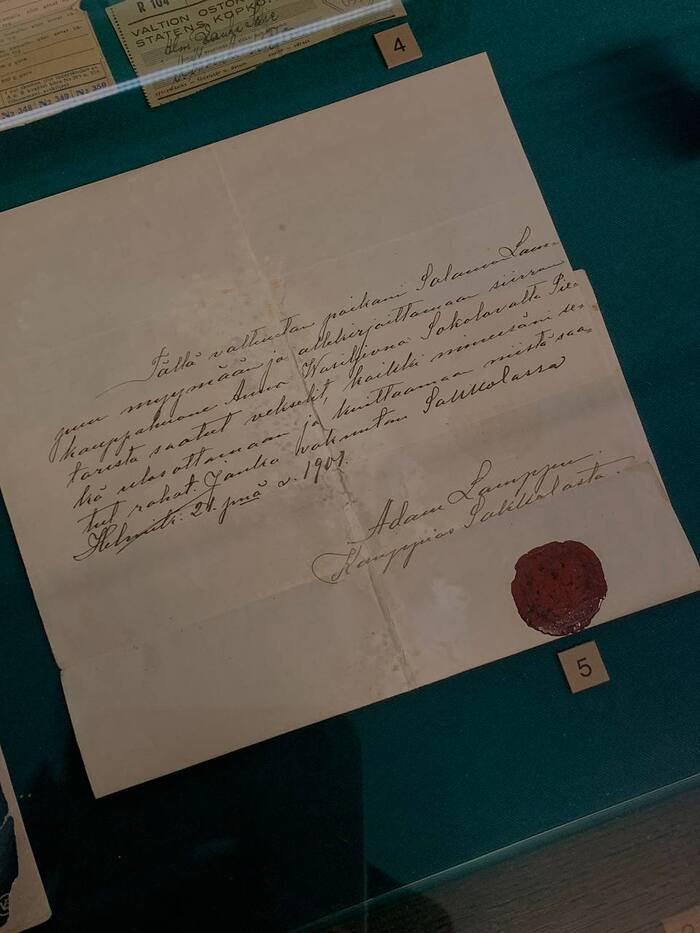 R 104
VALTION OSTOK
STATENS KÖPKO
No 348 No 349 No 350
4
Tällä valtuutan poikani Salamon Lam-
puu myymään ja allekirjoittamaan siirron
kauppahuone Anna Wasiljevna Sokolovalta Pie-
tarista saadut vekselit, kaikki nimeesäni se-
kä ulosottamaan ja kuittaamaan niistä saa-
tut rahat. Jonka vakuutan Sakkolassa
Helmik: 21 pnä v. 1901.
Adam Lamppu.
Kauppias Sakkolasta.
5